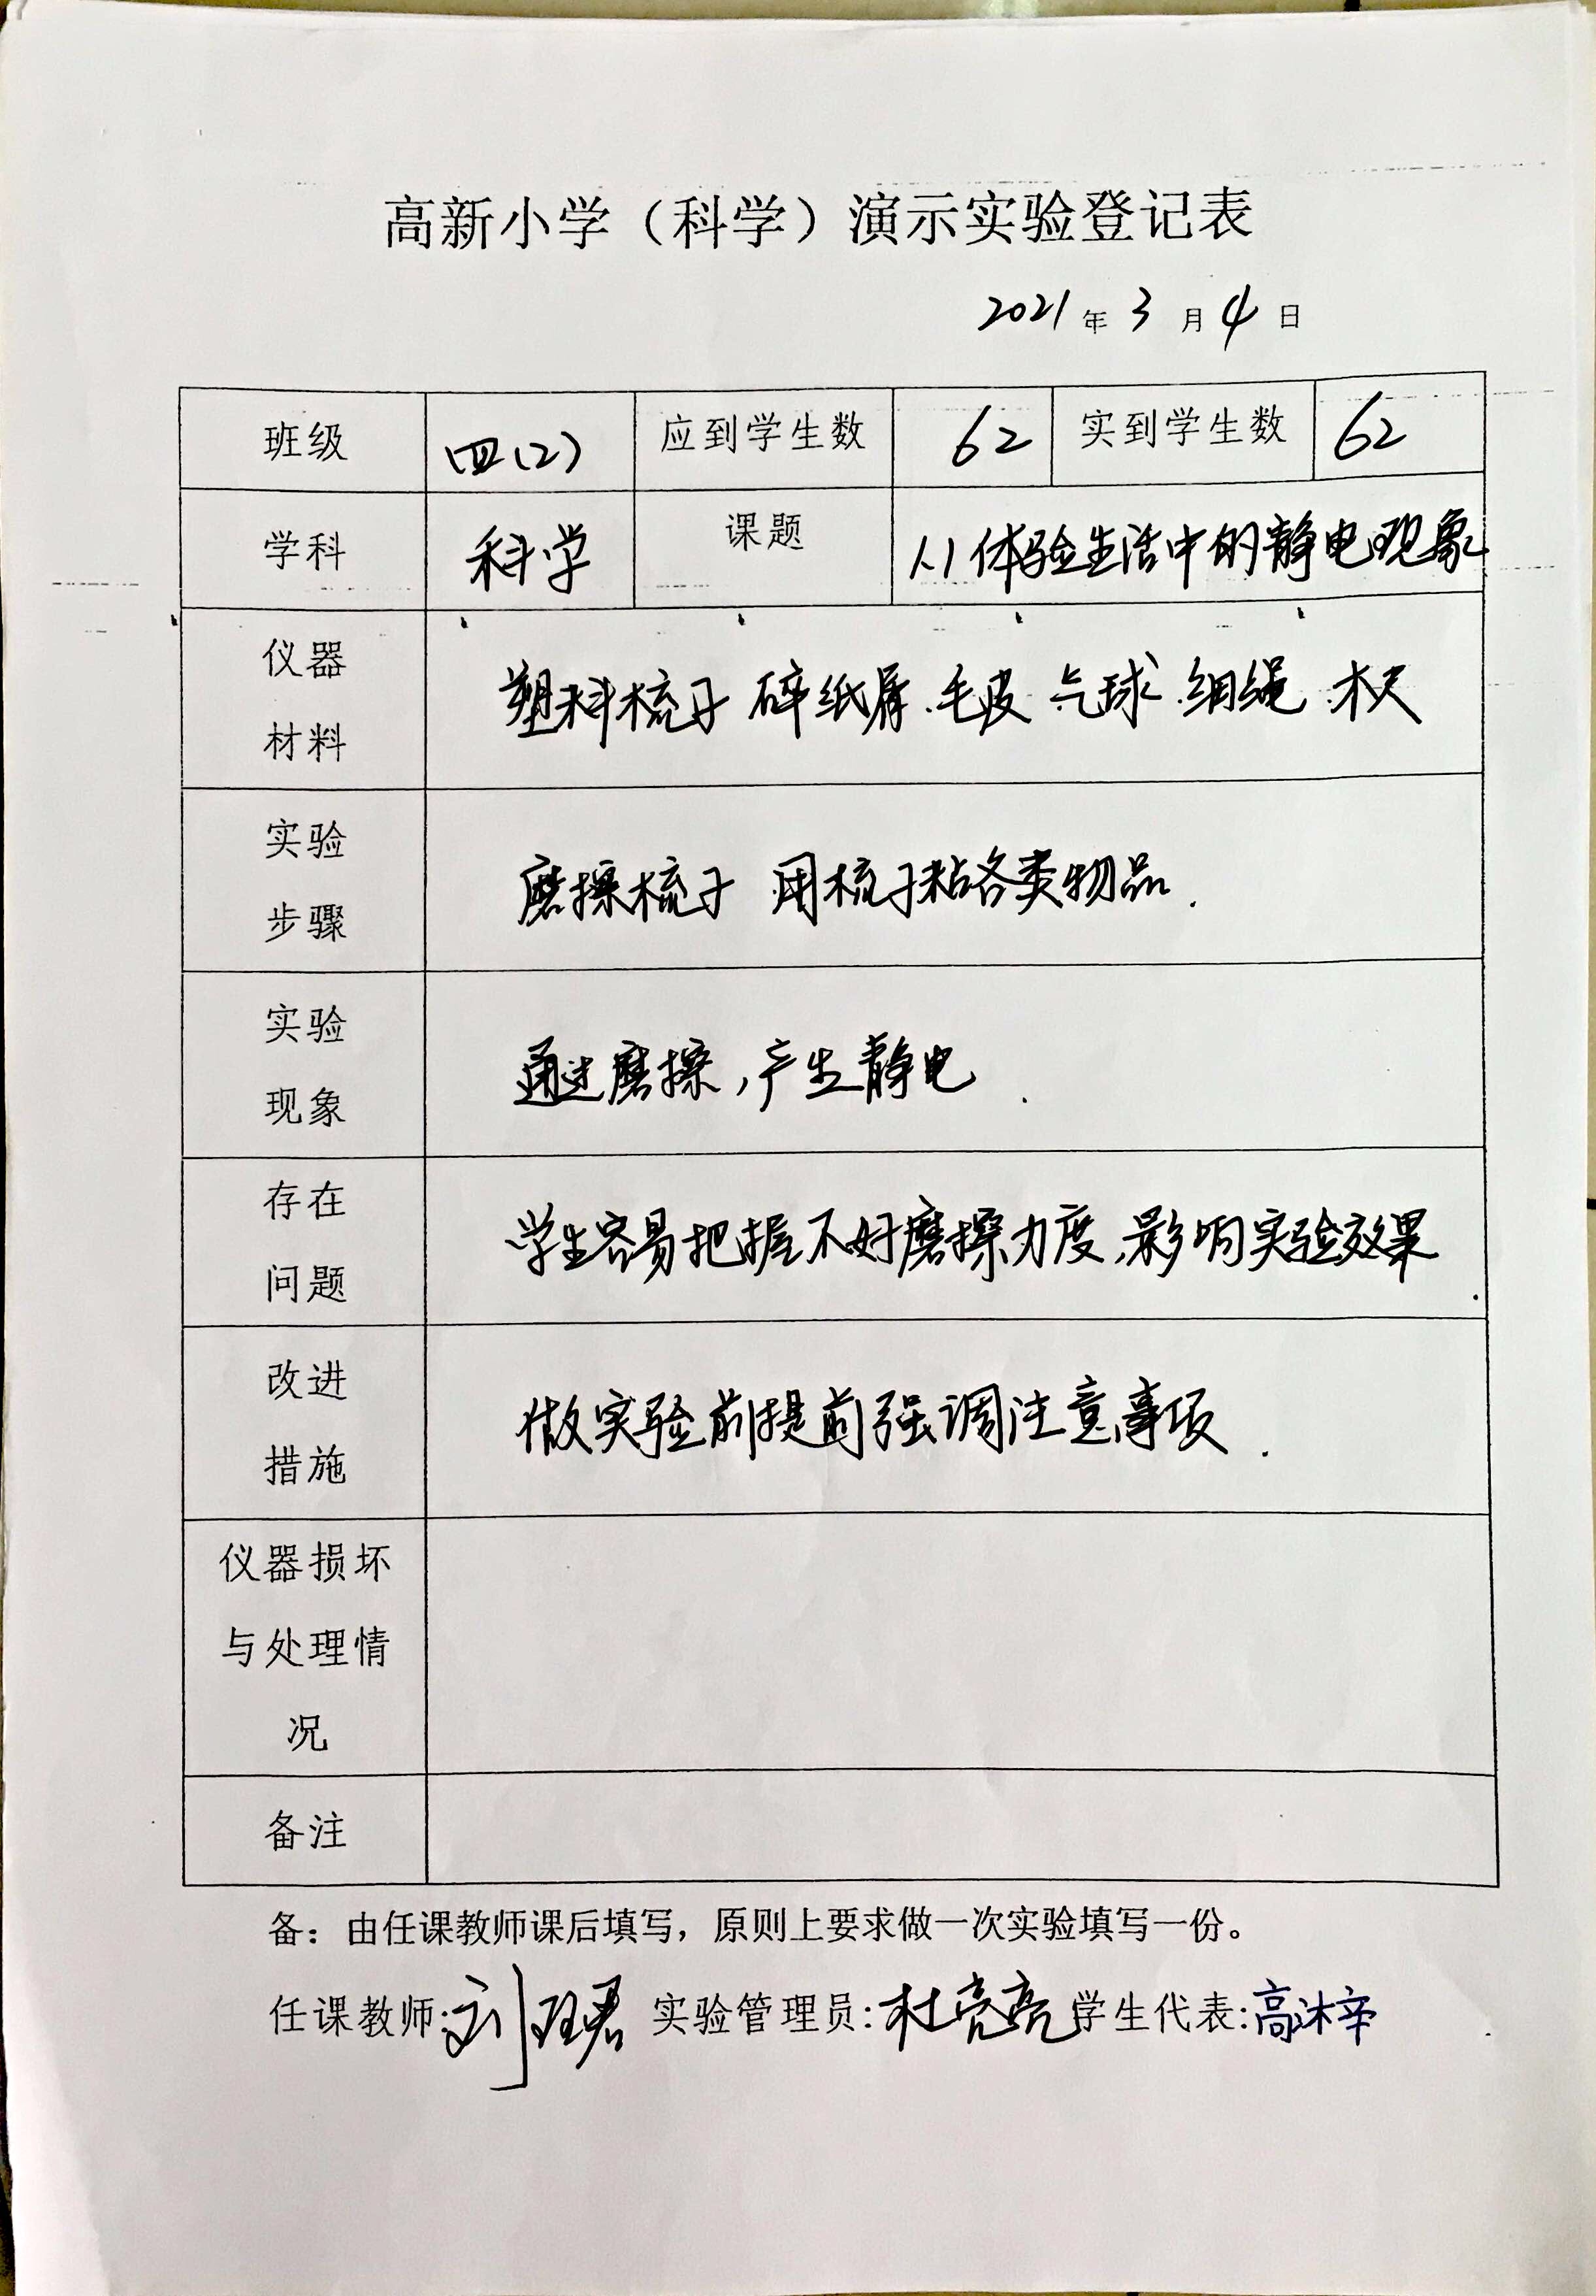 高新小学（科学）演示实验登记表
2021年3月4日
班级 四(2) 应到学生数 62 实到学生数 62
学科 科学 课题 1.1体验生活中的静电现象
仪器
材料
塑料梳子 碎纸屑.毛皮 气球.细绳.木尺
实验
步骤
磨擦梳子 用梳子粘各类物品.
实验
现象
通过磨擦,产生静电.
存在
问题
学生容易把握不好磨擦力度,影响实验效果.
改进
措施
做实验前提前强调注意事项.
仪器损坏
与处理情
况
备注
备：由任课教师课后填写，原则上要求做一次实验填写一份。
任课教师:刘君 实验管理员:杜亮亮 学生代表:高沐辛